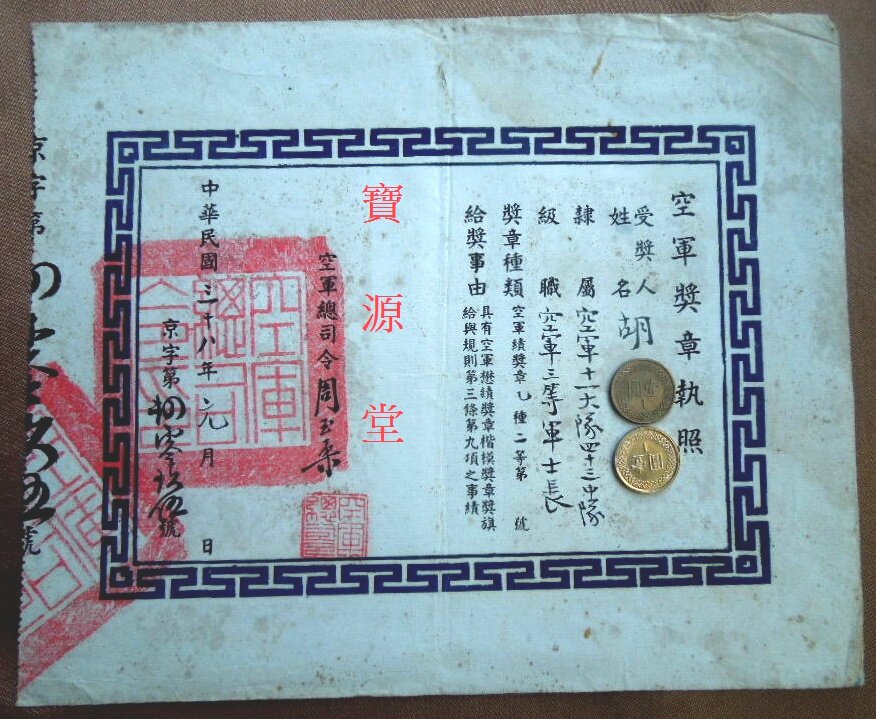 空軍獎章執照
受獎人
姓名 胡
隸屬 空軍十一大隊四十三中隊
級職 空軍三等軍士長
獎章種類 空軍績獎章乙種二等第 號
給獎事由 具有空軍懋績獎章楷模獎章獎旗
給與規則第三條第九項之事績
寶源堂
空軍總司令周至柔
中華民國三十八年元月 日
京字第 號
京字第 號